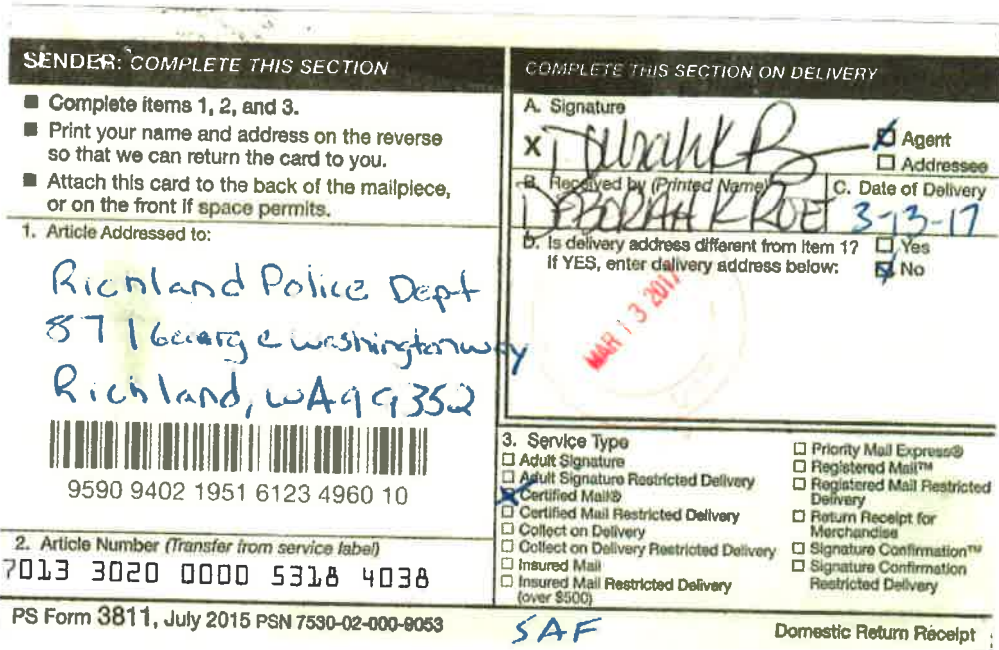 SENDER: COMPLETE THIS SECTION
■ Complete items 1, 2, and 3.
■ Print your name and address on the reverse
so that we can return the card to you.
■ Attach this card to the back of the mailpiece,
or on the front if space permits.
1. Article Addressed to:
Richland Police Dept
871 George Washington way
Richland, WA 99352
9590 9402 1951 6123 4960 10
2. Article Number (Transfer from service label)
7013 3020 0000 5318 4038
COMPLETE THIS SECTION ON DELIVERY
A. Signature
X
☒ Agent
☐ Addressee
B. Received by (Printed Name)
DEBORAH K
C. Date of Delivery
3-13-17
D. Is delivery address different from item 1? ☐ Yes
If YES, enter delivery address below: ☒ No
MAR 13 2017
3. Service Type
☐ Adult Signature
☐ Adult Signature Restricted Delivery
☒ Certified Mail®
☐ Certified Mail Restricted Delivery
☐ Collect on Delivery
☐ Collect on Delivery Restricted Delivery
☐ Insured Mail
☐ Insured Mail Restricted Delivery
(over $500)
☐ Priority Mail Express®
☐ Registered Mail™
☐ Registered Mail Restricted
Delivery
☐ Return Receipt for
Merchandise
☐ Signature Confirmation™
☐ Signature Confirmation
Restricted Delivery
PS Form 3811, July 2015 PSN 7530-02-000-9053
SAF
Domestic Return Receipt